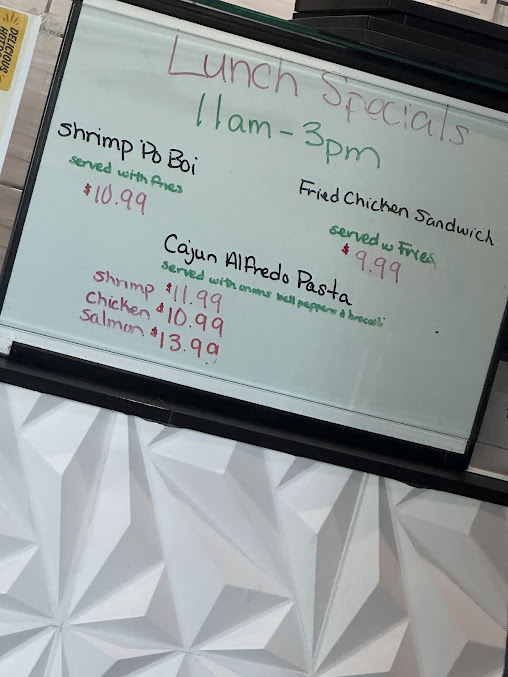 DELICIOUS
Lunch Specials
11am - 3pm
Shrimp Po Boi
served with fries
$10.99
Fried Chicken Sandwich
served w Fries
$9.99
Cajun Alfredo Pasta
served with onions bell peppers & brocoli
Shrimp $11.99
Chicken $10.99
Salmon $13.99